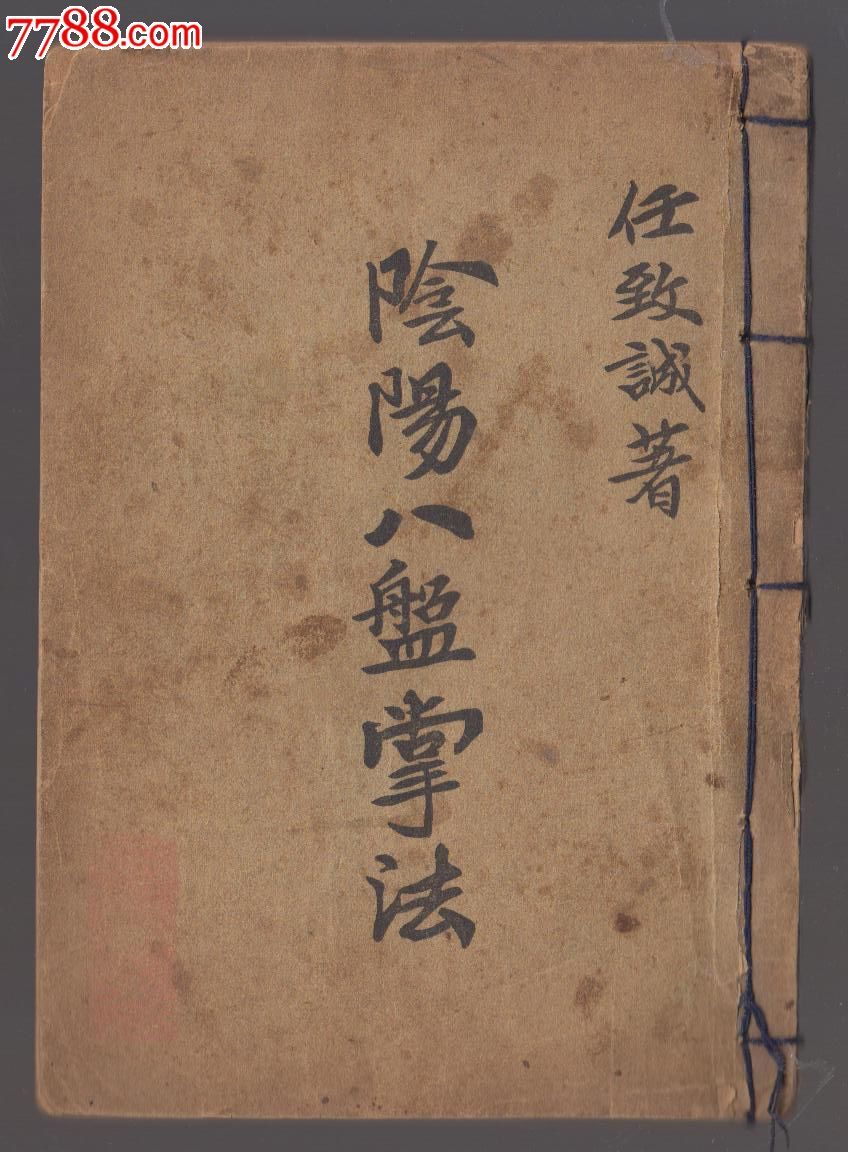 7788.com
任致誠著
陰陽八盤掌法